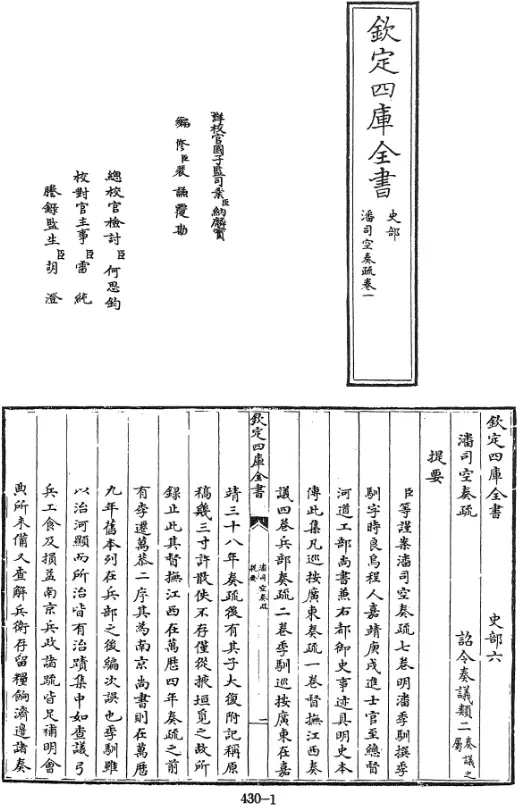 欽定四庫全書
史部
潘司空奏疏卷一
詳校官國子監司業臣納麟寶
編修臣裴謙覆勘
總校官檢討臣何思鈞
校對官主事臣雷純
謄錄監生臣胡澄
欽定四庫全書 史部六
潘司空奏疏 詔令奏議類二奏議之屬
提要
臣等謹案潘司空奏疏七卷明潘季馴撰季
馴字時良烏程人嘉靖庚戌進士官至總督
河道工部尚書兼右都御史事迹具明史本
傳此集凡巡按廣東奏疏一卷督撫江西奏
議四卷兵部奏疏二卷季馴巡按廣東在嘉
欽定四庫全書 潘司空奏疏 提要 一
靖三十八年奏疏後有其子大復附記稱原
稿幾三寸許散佚不存僅從掖垣覓之故所
錄止此其督撫江西在萬厯四年奏疏之前
有李遷萬恭二序其為南京尚書則在萬厯
九年舊本列在兵部之後編次誤也季馴雖
以治河顯而所治皆有治蹟集中如查議弓
兵工食及損益南京兵政諸疏皆足補明會
典所未備又查解兵衛存留糧餉濟邊諸奏
430-1